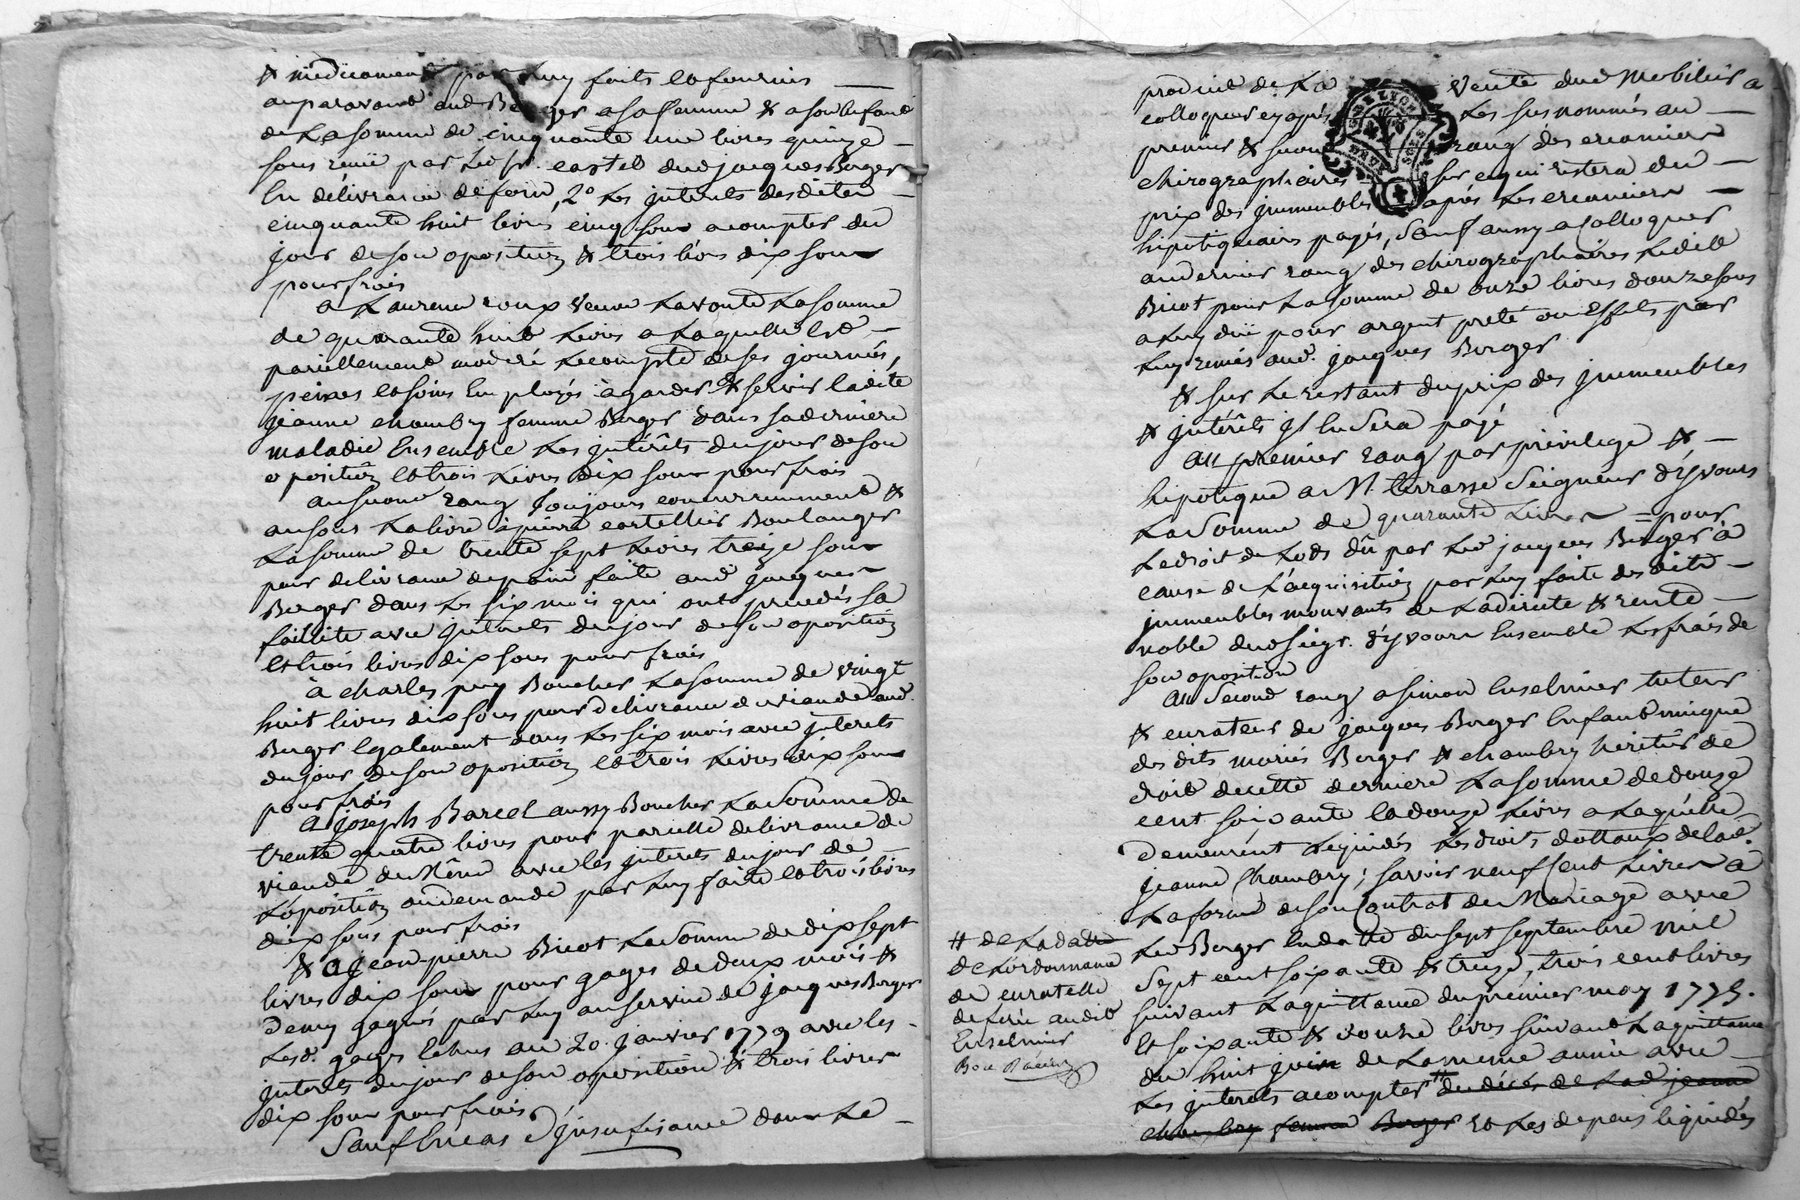 & medicament par luy faits et fournis
auparavant aud Berger a sa femme & a son enfant
de la somme de cinquante une livres quinze
sous par led Sr. castel aud jacques Berger
En délivrance de 2° les interets des dites
cinquante huit livres cinq sous a compter du
jour de son oposition & trois livres dix sous
pour frais
a Laurence roux veuve Lavoute La somme
de quarante huit Livres a Laquelle Est
pareillement moderé Le compte de ses journés,
peines et soins Employés à garder & servir ladite
jeanne chambry femme Berger dans sa derniere
maladie Ensemble Les intérêts du jour de son
oposition et trois Livres dix sous pour frais
au second rang toujours concurremment &
au sous La livre à pierre castellier Boulanger
La somme de trente sept Livres treize sous
pour delivrance de pain faite aud jacques
Berger dans Les six mois qui ont precedés sa
faillite avec interets du jour de son oposition
et trois livres dix sous pour frais
à charles puy Boucher La somme de vingt
huit livres dix sous pour delivrance de viande aud.
Berger Egalement dans Les six mois avec interets
du jour de son oposition et trois Livres dix sous
pour frais
A joseph Barcel aussy Boucher La somme de
trente quatre livres pour pareille delivrance de
viande de Même avec les interets du jour de
L'oposition en demande par Luy faite et trois livres
dix sous pour frais
& a Jean pierre Bicot La somme de dix sept
livres dix sous pour gages de deux mois &
demy gagnés par Luy au service de jacques Berger
Lesd. gages Echus au 20 janvier 1779 avec les
interets du jour de son oposition & trois livres
dix sous pour frais
Sauf En cas d'jnsufisance dans Le
produit de La vente dud Mobilier a
colloquer cy après Les sus nommés au
premier & second rang des creanciers
chirographaires sur ce qui restera du
prix des jmmeubles après Les creanciers
hipotiquaires payés, Sauf aussy a colloquer
au dernier rang des chirographaires Ledit
Bicot pour La somme de onze livres douze sous
a Luy düe pour argent preté ou Effets par
Luy remis aud. jacques Berger.
& sur Le restant du prix des jmmeubles
& jntérêts jl En Sera payé
Au premier rang par privilege &
hipotique a Mr. terrasse Seigneur d'yvours
La Somme de quarante Livres = pour
Le droit de Lods dû par Led jacques Berger à
cause de L'acquisition par Luy faite des dits
jmmeubles mouvants de La directe & rente
noble dud Seigr. d'yvours Ensemble Les frais de
son oposition
Au Second rang a simon Enselmier tuteur
& curateur de jacques Berger Enfant unique
des dits mariés Berger & chambry heritier de
droit de cette derniere La somme de douze
cent soixante et douze Livres a Laquelle
demeurent Liquidés Les droits dottaux de lad.
Jeanne Chambry; savoir neuf Cent Livres à
La forme de son Contrat de Mariage avec
Led Berger En datte du sept septembre mil
Sept cent soixante & treize, trois cent livres
suivant La quittance du premier may 1775.
Et soixante & douze livres suivant La quittance
du huit juin de La meme année avec
Les jnterets a compter # du décès de Lad jeanne
chambry femme Berger et Les depens liquidés
# de La datte
de L'ordonnance
de curatelle
deferée audit
Enselmier